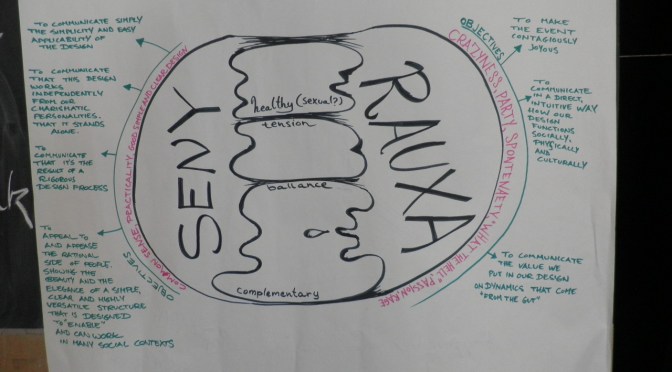 TO COMMUNICATE SIMPLY
THE SIMPLICITY AND EASY
APPLICABILITY OF
THE DESIGN
TO COMMUNICATE
THAT THIS DESIGN
WORKS
INDEPENDENTLY
FROM OUR
CHARISMATIC
PERSONALITIES,
THAT IT STANDS
ALONE.
TO
COMMUNICATE
THAT IT'S THE
RESULT OF A
RIGOROUS
DESIGN PROCESS
TO
APPEAL TO
AND APPEASE
THE RATIONAL
SIDE OF PEOPLE.
SHOWING THE
BEAUTY AND THE
ELEGANCE OF A SIMPLE,
CLEAR AND HIGHLY
VERSATILE STRUCTURE
THAT IS DESIGNED
TO "ENABLE"
AND CAN WORK
IN MANY SOCIAL CONTEXTS
OBJECTIVES
COMMON SENSE, PRACTICALITY, GOOD SIMPLE AND CLEAR DESIGN
SENY
healthy (sexual?)
tension
ballance
complementary
RAUXA
OBJECTIVES
CRAZYNESS, PARTY, SPONTENAETY, "WHAT THE HELL", PASSION, RAGE
TO MAKE
THE EVENT
CONTAGIOUSLY
JOYOUS
TO COMMUNICATE
IN A DIRECT,
INTUITIVE WAY
HOW OUR
DESIGN
FUNCTIONS
SOCIALLY,
PHYSICALLY
AND
CULTURALLY
TO COMMUNICATE
THE VALUE WE
PUT IN OUR DESIGN
ON DYNAMICS THAT COME
"FROM THE GUT"